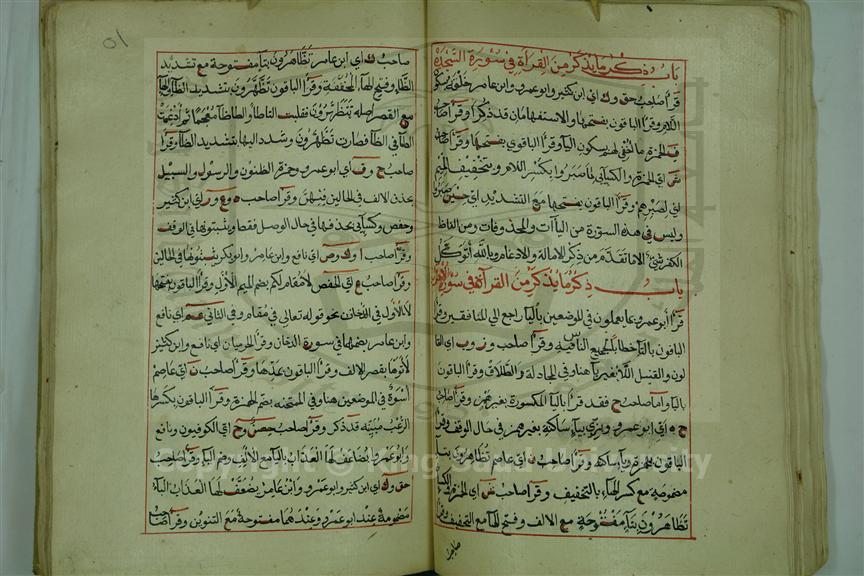 باب ذكر ما يذكر من القرأة في سورة السجدة
قرأ صاحب حق وك اي ابن كثير وابو عمرو وابن عامر خلقه بسكون
اللام وقرأ الباقون بفتحها والاستفهامان قد ذكرا وقرأ صاحب
ف اي حمزة ما اخفي لهم بسكون اليا وقرأ الباقون بفتحها وقرأ صاحب
ش اي الحمزة والكسائي لما صبروا بكسر اللام وبتخفيف الميم
اي لصبرهم وقرأ الباقون بفتحها مع التشديد اي حين صبروا
وليس في هذه السورة من الياآت والمحذوفات ومن الفاظ
الكفرشئ الا ما تقدم من ذكر الامالة والادغام وبالله أتوكل
باب ذكر ما يذكر من القرأة في سورة
قرأ أبو عمرو بما يعملون في الموضعين باليا راجع الي المنافقين وقرأ
الباقون بالتا خطابا لجميع الناس وقرأ صاحب و ز وب اي
لون والقنبل اللاء بغير يآ هنا وفي المجادلة والطلاق وقرأ الباقون
باليا واما صاحب ح فقد قرأ باليا المكسورة بغير همز وقرأ صاحب
ح ه اي ابو عمرو وبزي بيآء ساكنة بغير همز في حال الوقف وقرأ
الباقون بهمزة ويآ ساكنة وقرأ صاحب ن اي عاصم تظاهرون بتآ
مضمومة مع كسر الهاء بالتخفيف وقرأ صاحب ش اي الحمزة
تظاهرون بتآء مفتوحة مع الالف وفتح الهآ مع التخفيف وقرأ
صاحب
صاحب ك اي ابن عامر تظاهرون بتآء مفتوحة مع تشديد
الظاء وفتح الهآء المخففة وقرأ الباقون تظهرون بتشديد الظآ والهآ
مع القصر اصله تتظهرون فقلبت التا طا والطا ظا معجما ثم أدغمت
الظآ في الظآ فصارت تظهرون وشدد الها بتشديد الظآ وقرأ
صاحب ح وف اي ابو عمرو وحمزة الظنون والرسول والسبيل
بحذف الالف في الحالين فيهن وقرأ صاحب ه وع ور اي ابن كثير
وحفص وكسآئي بحذفها في حال الوصل فقط ويثبتونها في الوقف
وقرأ صاحب ا وك وص اي نافع وابن عامر وابو بكر يثبتونها في الحالين
وقرأ صاحب ع اي الحفص لا مقام لكم بضم الميم الاول وقرأ الباقون بفتحها
لا الاول في الدخان نحو قوله تعالي في مقام وفي الثاني عم اي نافع
وابن عامر بضمها في سورة الدخان وقرأ الحرميان اي نافع وابن كثير
لأتوها بقصر الالف وقرأ الباقون بمدها وقرأ صاحب ن اي عاصم
أسوة في الموضعين هنا وفي الممتحنة بضم الهمزة وقرأ الباقون بكسرها
الرعب مبينة قد ذكر وقرأ صاحب حصن وح اي الكوفيون ونافع
وابو عمرو يضاعف لها العذاب باليآ مع الالف وضم اليآ وقرأ صاحب
حق وك اي ابن كثير وابو عمرو وابن عامر يضعف لها العذاب اليآء
مضمومة عند ابو عمرو وعندهما مفتوحة مع التنوين وقرأ صاحب
Copyright © King Saud University